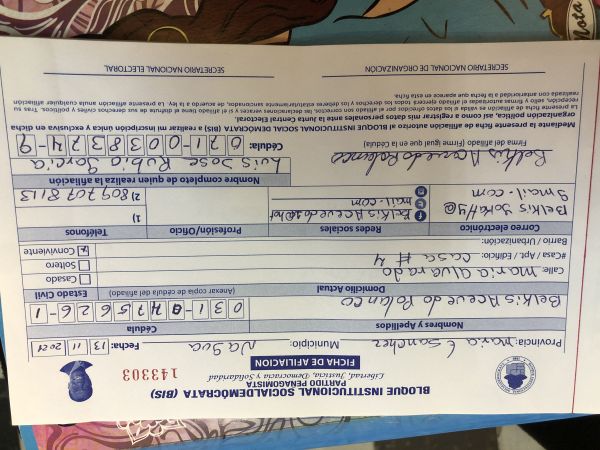 BLOQUE INSTITUCIONAL SOCIALDEMÓCRATA (BIS)
PARTIDO PEÑAGOMISTA
Libertad, Justicia, Democracia y Solidaridad
FICHA DE AFILIACION
143303
Provincia: Maria t Sanchez Municipio: Nagua Fecha: 13 11 2021
Nombres y Apellidos Cédula
Belkis Acevedo Polanco 031-0475626-1
Domicilio Actual (Anexar copia de cédula del afiliado) Estado Civil
Calle: Maria alvarado Casado
#Casa / Apt. / Edificio: casa #4 Soltero
Barrio / Urbanización: Conviviente
Correo electrónico Redes sociales Profesión/Oficio Teléfonos
Belkis Yokatty@ Belkis Acevedo@hot 1)
gmail.com mail.com 2) 809 707 8113
Nombre completo de quien realiza la afiliación
Belkis Acevedo Polanco Luis Jose Rubio Garcia
Firma del afiliado (Firme igual que en la Cédula) Cédula: 071-0038374-9
Mediante la presente ficha de afiliación autorizo al BLOQUE INSTITUCIONAL SOCIAL DEMÓCRATA (BIS) a realizar mi inscripción única y exclusiva en dicha
organización política, así como a registrar mis datos personales ante la Junta Central Electoral.
La presente ficha de afiliación es válida si los datos ofrecidos por el afiliado son correctos, las declaraciones veraces y si el afiliado tiene el disfrute de sus derechos civiles y políticos. Tras su
recepción, sello y firma autorizada el afiliado ejercerá todos los derechos y los deberes estatutariamente sancionados, de acuerdo a la ley. La presente afiliación anula cualquier afiliación
realizada con anterioridad a la fecha que aparece en esta ficha.
SECRETARIO NACIONAL DE ORGANIZACIÓN SECRETARIO NACIONAL ELECTORAL
Nota